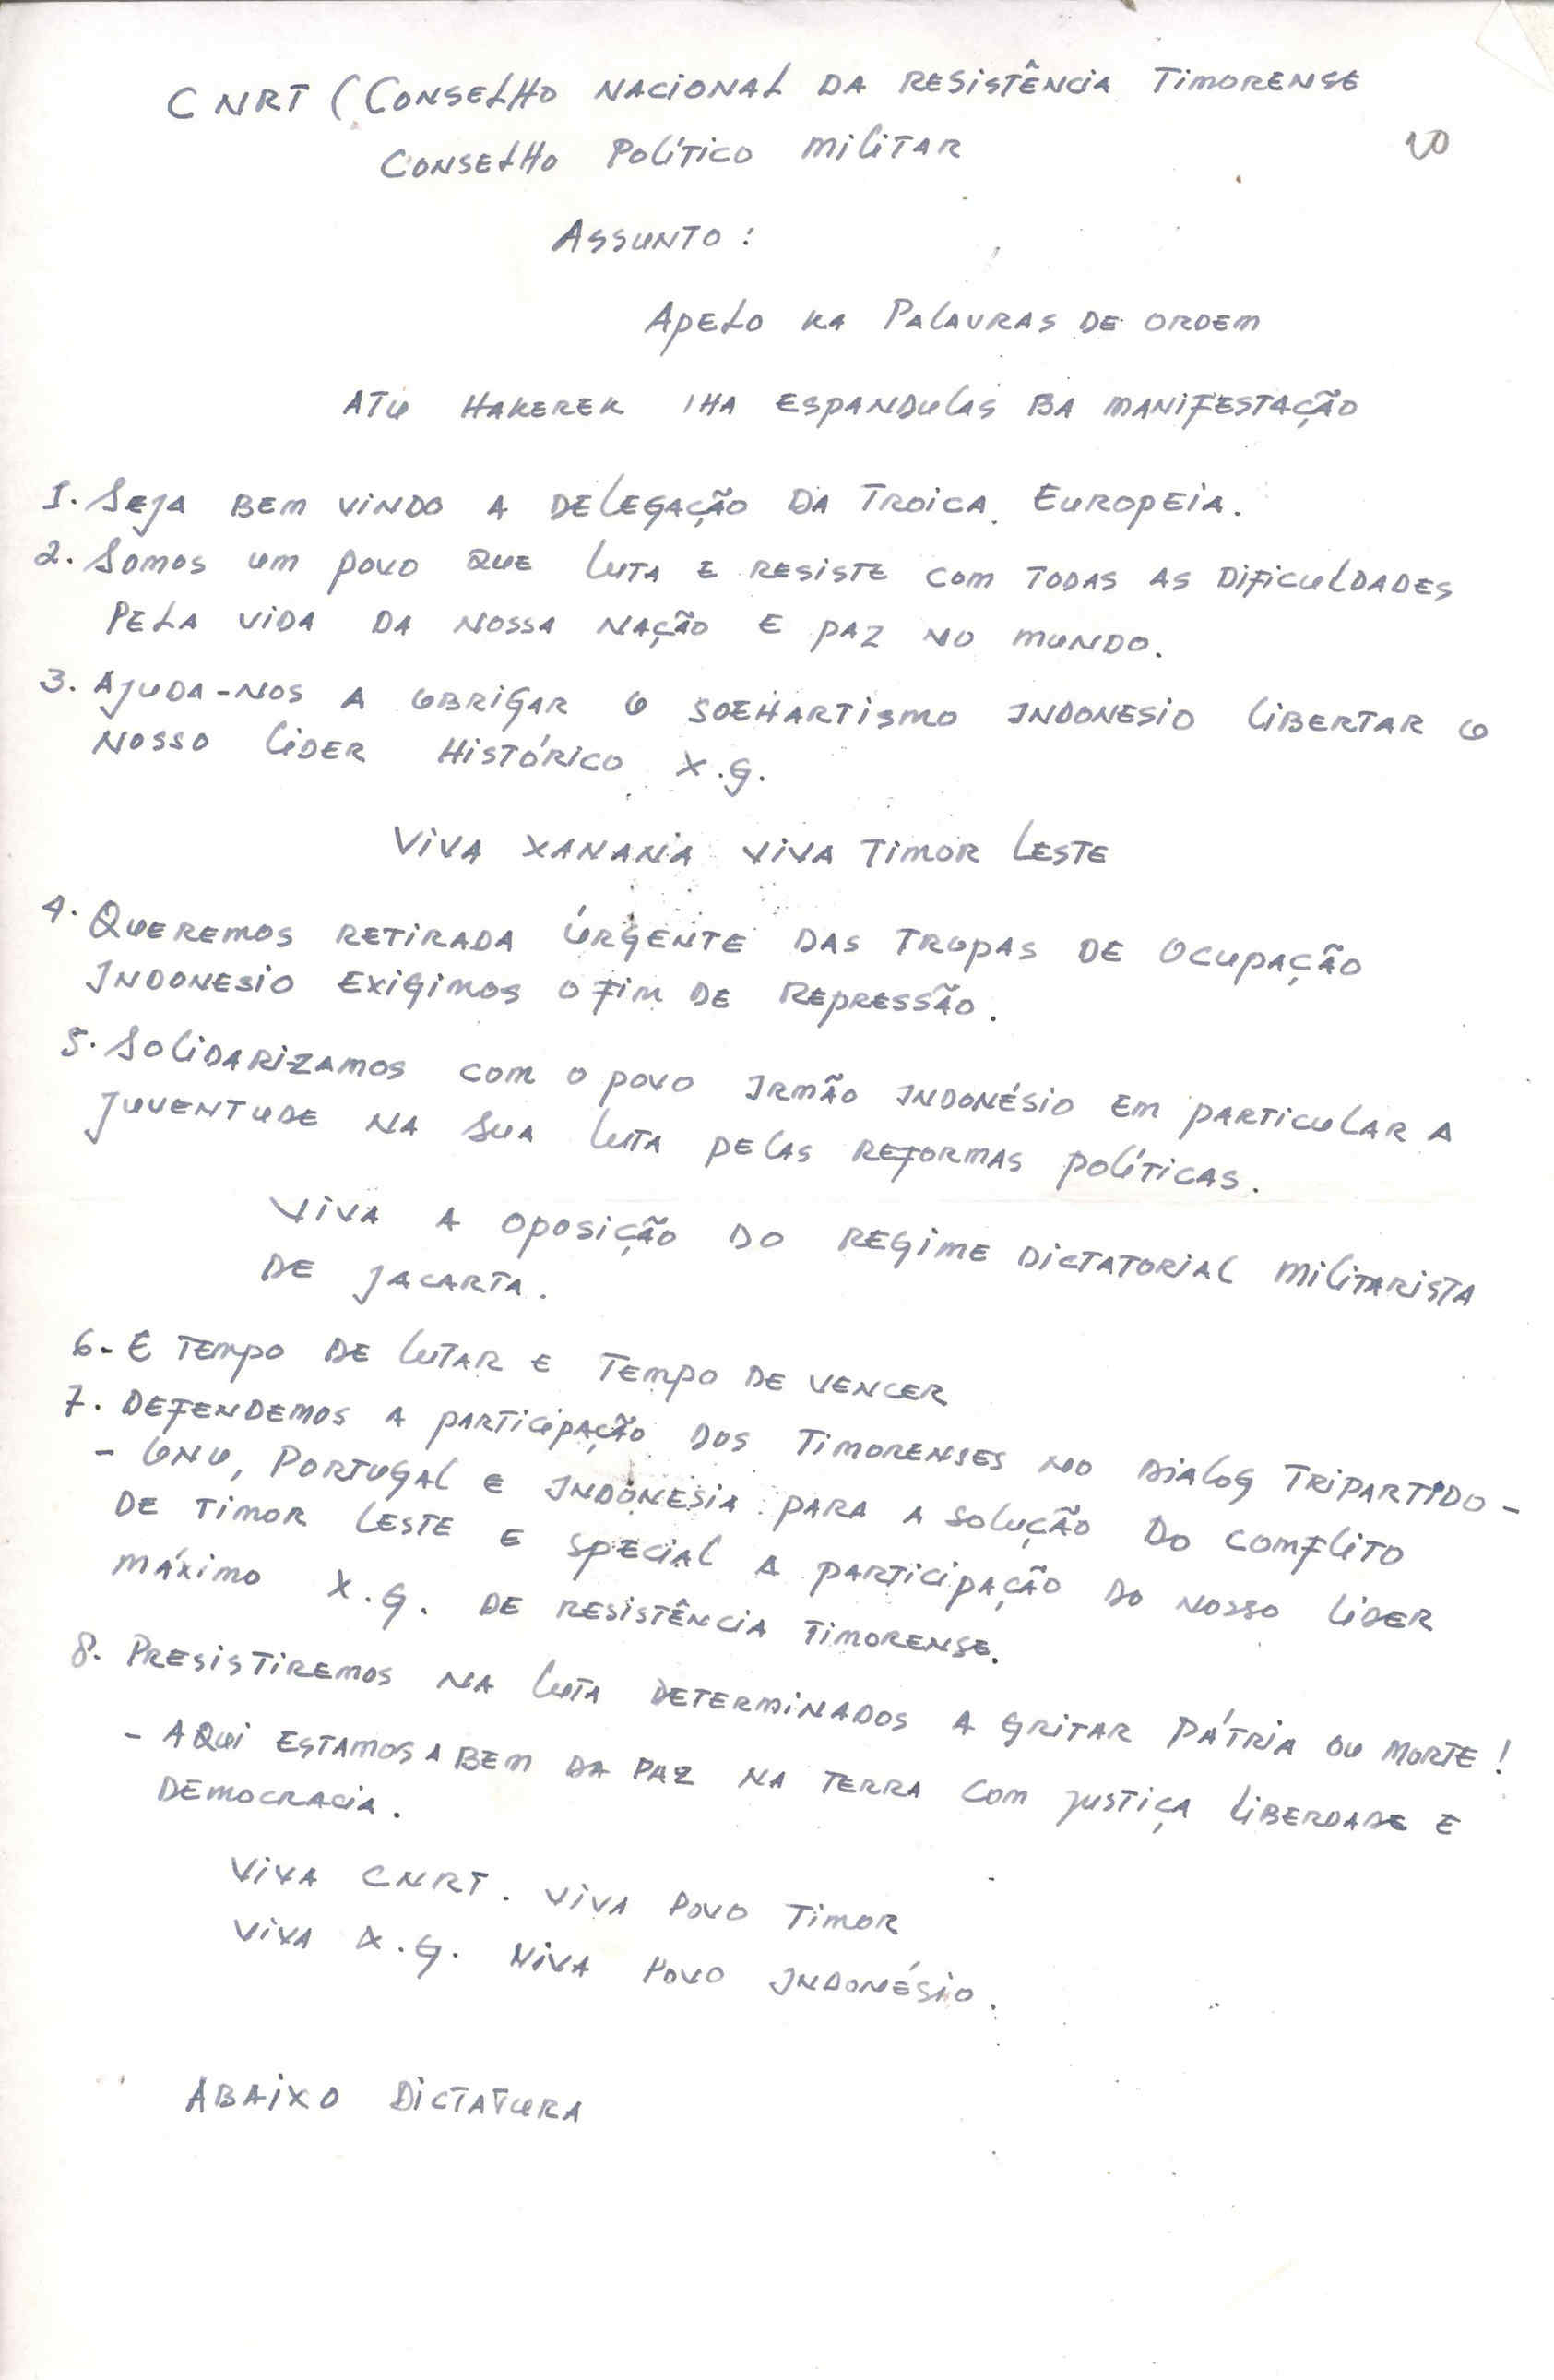 CNRT (CONSELHO NACIONAL DA RESISTÊNCIA TIMORENSE
20
CONSELHO POLÍTICO MILITAR
ASSUNTO :
APELO KA PALAVRAS DE ORDEM
ATU HAKEREK IHA ESPANDULAS BA MANIFESTAÇÃO
1. SEJA BEM VINDO A DELEGAÇÃO DA TROICA EUROPEIA.
2. SOMOS UM POVO QUE LUTA E RESISTE COM TODAS AS DIFICULDADES
PELA VIDA DA NOSSA NAÇÃO E PAZ NO MUNDO.
3. AJUDA-NOS A OBRIGAR O SOEHARTISMO INDONESIO LIBERTAR O
NOSSO LIDER HISTÓRICO X.G.
VIVA XANANA VIVA TIMOR LESTE
4. QUEREMOS RETIRADA ÚRGENTE DAS TROPAS DE OCUPAÇÃO
INDONESIO EXIGIMOS O FIM DE REPRESSÃO.
5. SOLIDARIZAMOS COM O POVO IRMÃO INDONÉSIO EM PARTICULAR A
JUVENTUDE NA SUA LUTA PELAS REFORMAS POLÍTICAS.
VIVA A OPOSIÇÃO DO REGIME DICTATORIAL MILITARISTA
DE JACARTA.
6- E TEMPO DE LUTAR E TEMPO DE VENCER
7. DEFENDEMOS A PARTICIPAÇÃO DOS TIMORENSES NO DIALOG TRIPARTIDO -
- ONU, PORTUGAL E INDONESIA PARA A SOLUÇÃO DO COMFLITO
DE TIMOR LESTE E SPECIAL A PARTICIPAÇÃO DO NOSSO LIDER
MÁXIMO X.G. DE RESISTÊNCIA TIMORENSE.
8. PRESISTIREMOS NA LUTA DETERMINADOS A GRITAR PÁTRIA OU MORTE!
- AQUI ESTAMOS A BEM DA PAZ NA TERRA COM JUSTIÇA LIBERDADE E
DEMOCRACIA.
VIVA CNRT. VIVA POVO TIMOR
VIVA X.G. VIVA POVO INDONÉSIO.
ABAIXO DICTATURA